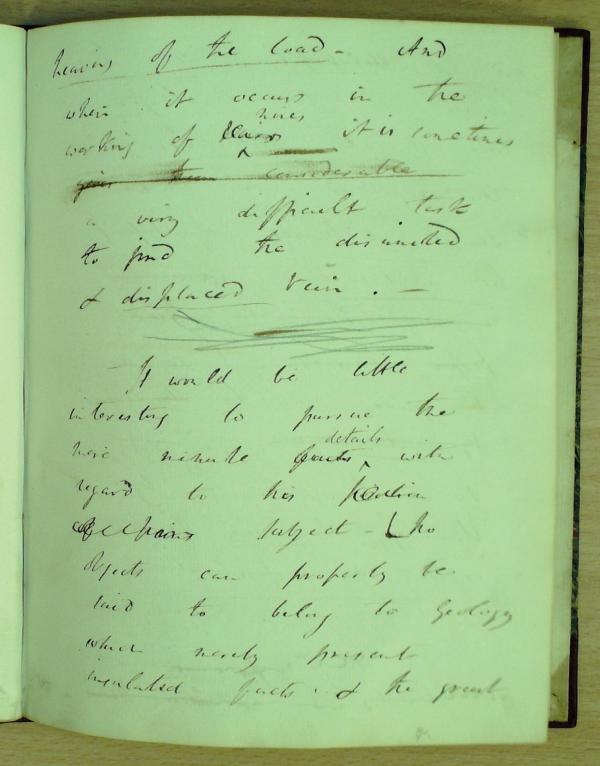 heaving of the load - And
when it occurs in the
mines
working of it is sometimes
gives them considerable
a very difficult task
to find the disunited
& displaced vein . -
It would be little
interesting to pursue the
details
here minute facts with
regard to his
subject - No
objects can properly be
said to belong to Geology
which merely present
insulated facts . & the great